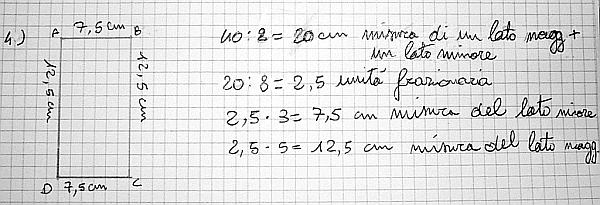 4.)
A 7,5 cm B
12,5 cm
12,5 cm
D 7,5 cm C
40 : 2 = 20 cm misura di un lato magg +
un lato minore
20 : 8 = 2,5 unità frazionaria
2,5 · 3 = 7,5 cm misura del lato minore
2,5 · 5 = 12,5 cm misura del lato magg.